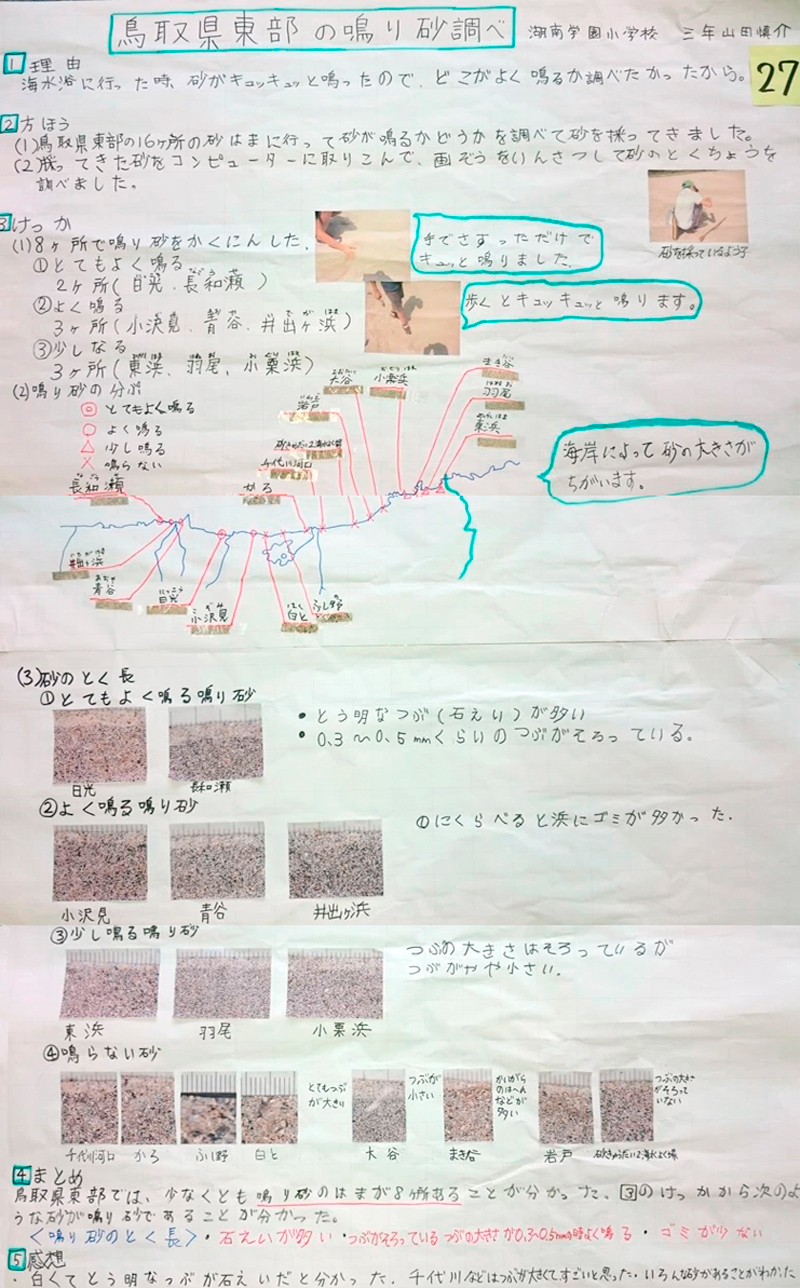 鳥取県東部の鳴り砂調べ
湖南学園小学校 三年山田慎介
27
1 理由
海水浴に行った時、砂がキュッキュッと鳴ったので、どこがよく鳴るか調べたかったから。
2 方ほう
(1)鳥取県東部の16ヶ所の砂はまに行って砂が鳴るかどうかを調べて砂を採ってきました。
(2)採ってきた砂をコンピューターに取りこんで、画ぞうをいんさつして砂のとくちょうを
調べました。
砂を採っているよう子
3 けっか
(1)8ヶ所で鳴り砂をかくにんした。
手でさすっただけで
キュッと鳴りました。
①とてもよく鳴る
2ヶ所(日光、長和瀬)
②よく鳴る
歩くとキュッキュッと鳴ります。
3ヶ所(小沢見、青谷、井出ヶ浜)
③少しなる
3ヶ所(東浜、羽尾、小栗浜)
(2)鳴り砂の分ぷ
◎ とてもよく鳴る
○ よく鳴る
△ 少し鳴る
× 鳴らない
まき谷
大谷
小栗浜
羽尾
岩戸
東浜
千代川河口
長和瀬
かろ
海岸によって砂の大きさが
ちがいます。
井出ヶ浜
青谷
日光
小沢見
白と
ふし野
(3)砂のとく長
①とてもよく鳴る鳴り砂
・とう明なつぶ(石えい)が多い
・0.3〜0.5mmくらいのつぶがそろっている。
日光
長和瀬
②よく鳴る鳴り砂
①にくらべると浜にゴミが多かった.
小沢見
青谷
井出ヶ浜
③少し鳴る鳴り砂
つぶの大きさはそろっているが
つぶがやや小さい.
東浜
羽尾
小栗浜
④鳴らない砂
とてもつぶ
が大きい
つぶが
小さい
かいがら
のはへん
などが
多い
つぶの大きさ
がそろって
いない
千代川河口
かろ
ふし野
白と
大谷
まき谷
岩戸
4 まとめ
鳥取県東部では、少なくとも鳴り砂のはまが8ヶ所あることが分かった、3のけっかから次のよ
うな砂が鳴り砂であることが分かった。
〈鳴り砂のとく長〉・石えいが多い・つぶがそろっているつぶの大きさが0.3~0.5mmの時よく鳴る・ゴミが少ない
5 感想
・白くてとう明なつぶが石えいだと分かった.千代川などはつぶが大きくてすごいと思った.いろんな砂があることがわかった